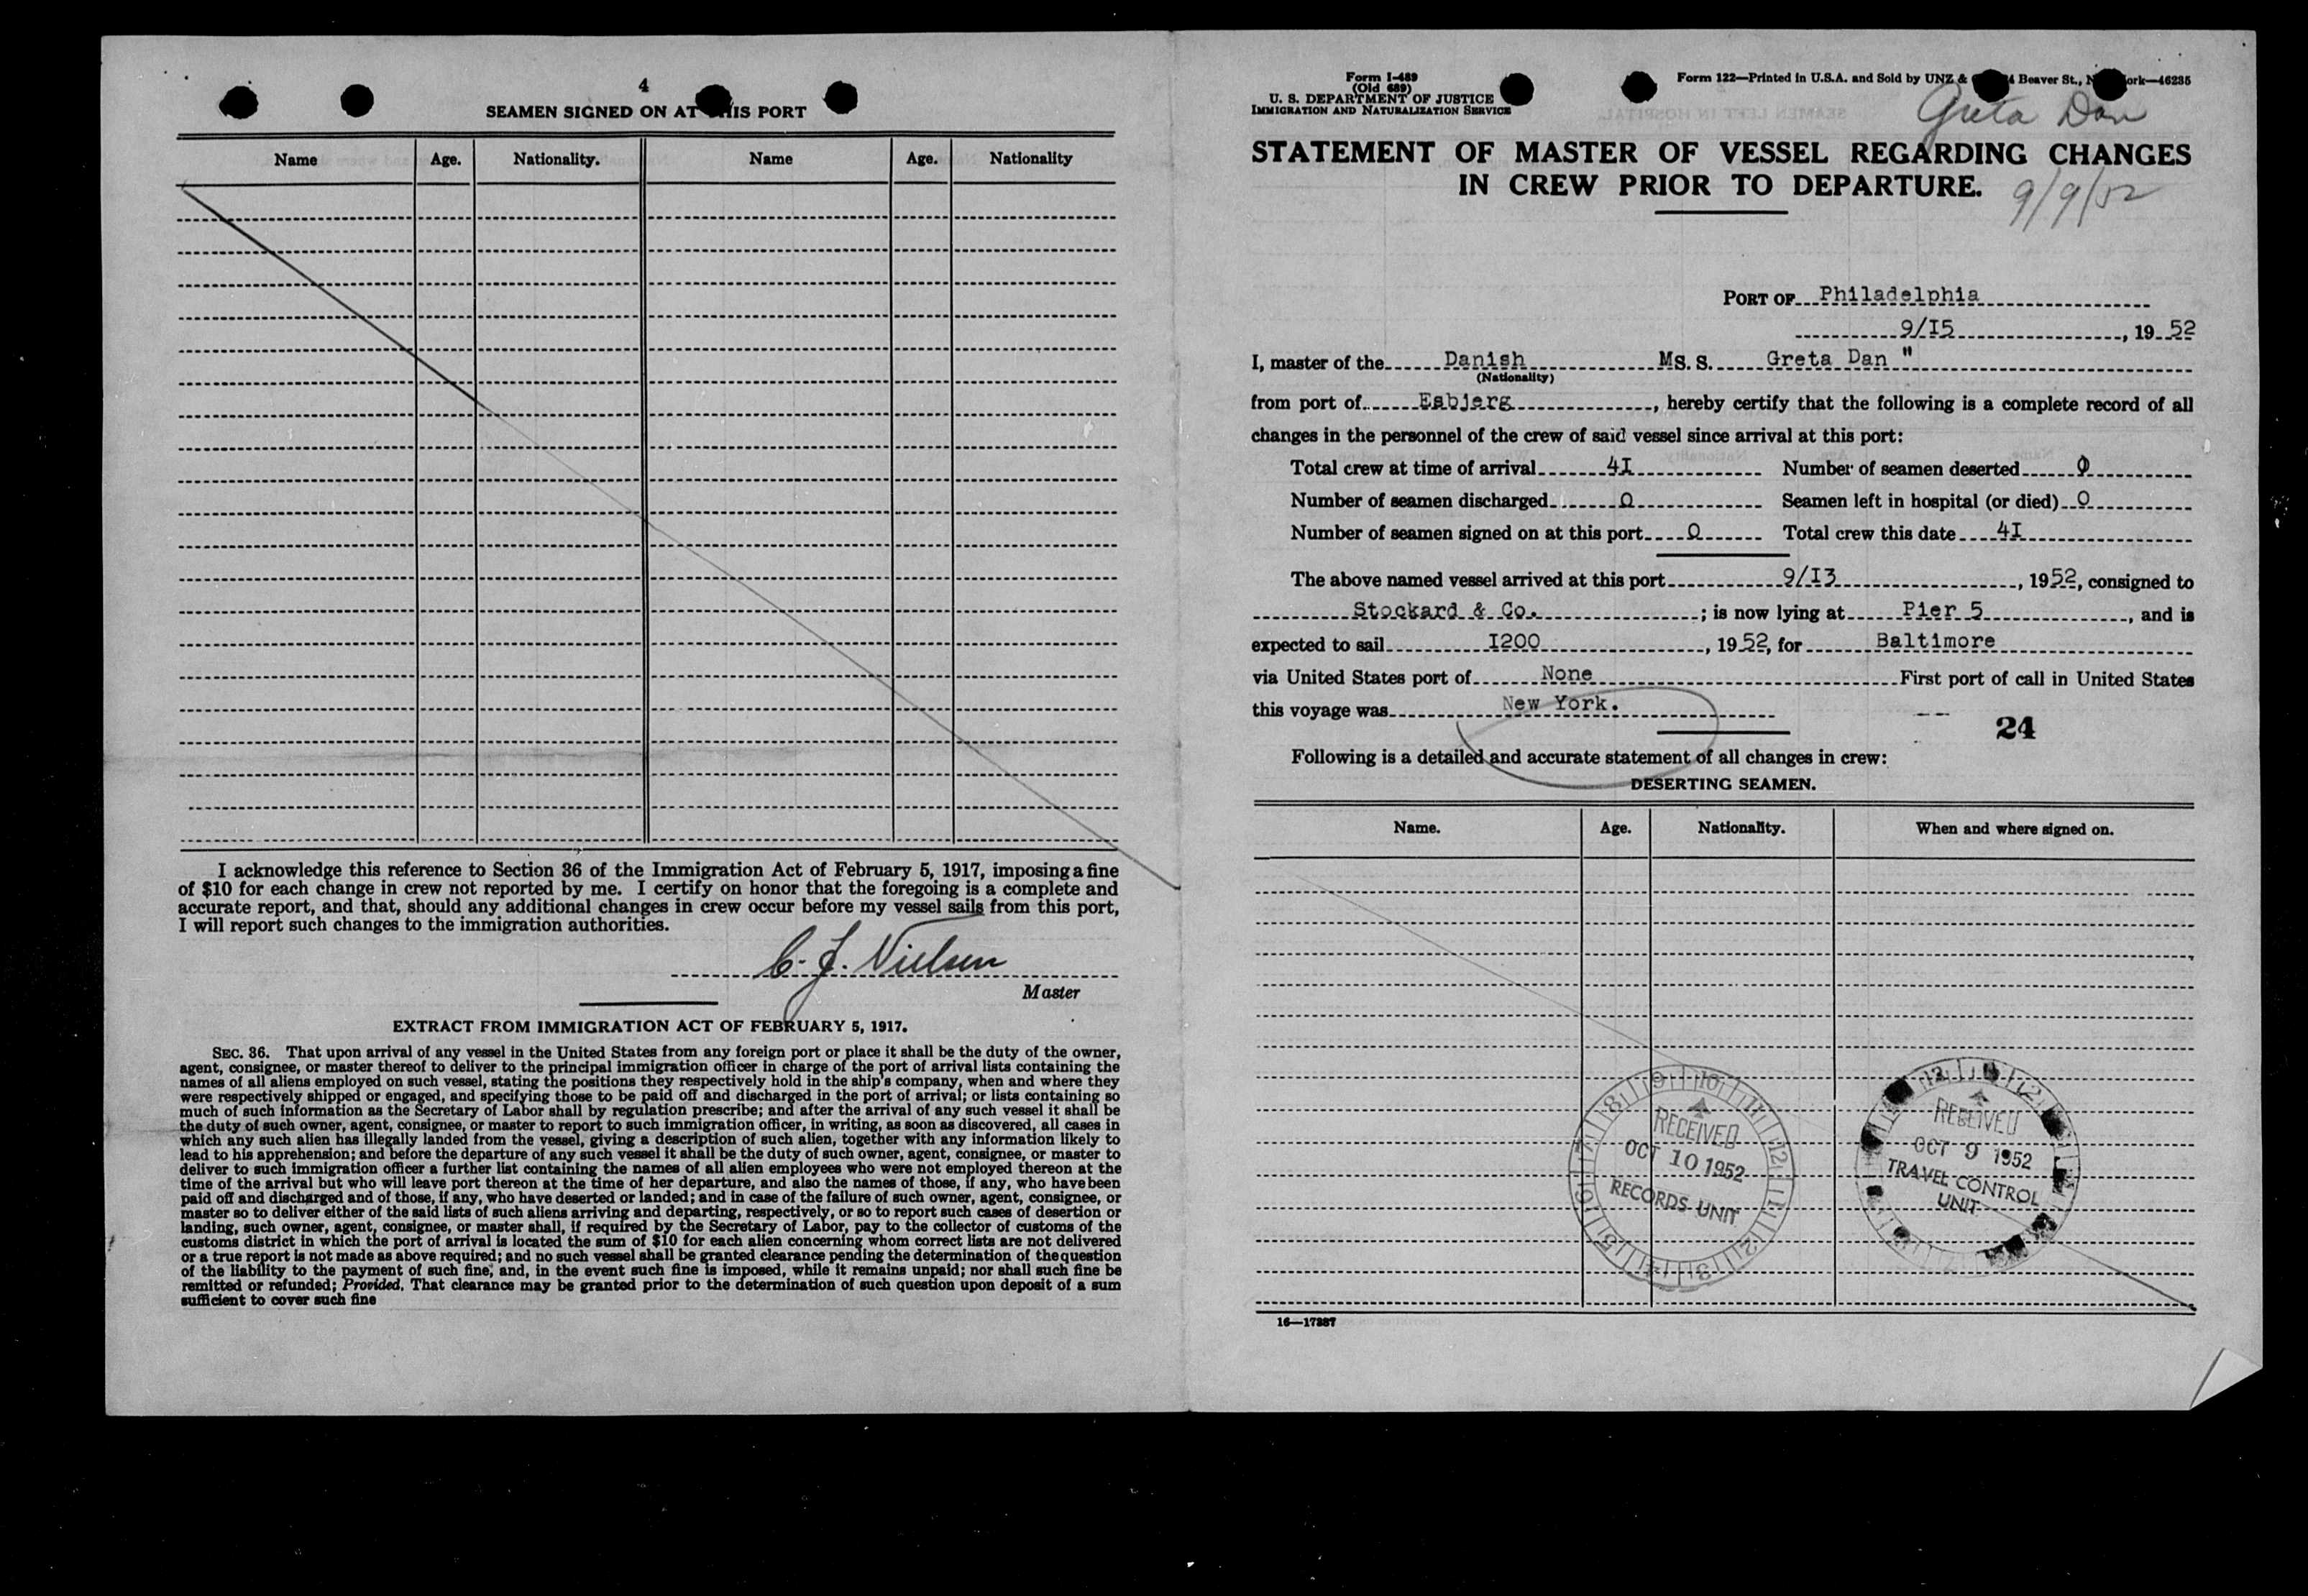 4
SEAMEN SIGNED ON AT THIS PORT
Name Age. Nationality. Name Age. Nationality
I acknowledge this reference to Section 36 of the Immigration Act of February 5, 1917, imposing a fine
of $10 for each change in crew not reported by me. I certify on honor that the foregoing is a complete and
accurate report, and that, should any additional changes in crew occur before my vessel sails from this port,
I will report such changes to the immigration authorities.
C. J. Nielsen
Master
EXTRACT FROM IMMIGRATION ACT OF FEBRUARY 5, 1917.
SEC. 36. That upon arrival of any vessel in the United States from any foreign port or place it shall be the duty of the owner,
agent, consignee, or master thereof to deliver to the principal immigration officer in charge of the port of arrival lists containing the
names of all aliens employed on such vessel, stating the positions they respectively hold in the ship's company, when and where they
were respectively shipped or engaged, and specifying those to be paid off and discharged in the port of arrival; or lists containing so
much of such information as the Secretary of Labor shall by regulation prescribe; and after the arrival of any such vessel it shall be
the duty of such owner, agent, consignee, or master to report to such immigration officer, in writing, as soon as discovered, all cases in
which any such alien has illegally landed from the vessel, giving a description of such alien, together with any information likely to
lead to his apprehension; and before the departure of any such vessel it shall be the duty of such owner, agent, consignee, or master to
deliver to such immigration officer a further list containing the names of all alien employees who were not employed thereon at the
time of the arrival but who will leave port thereon at the time of her departure, and also the names of those, if any, who have been
paid off and discharged and of those, if any, who have deserted or landed; and in case of the failure of such owner, agent, consignee, or
master so to deliver either of the said lists of such aliens arriving and departing, respectively, or so to report such cases of desertion or
landing, such owner, agent, consignee, or master shall, if required by the Secretary of Labor, pay to the collector of customs of the
customs district in which the port of arrival is located the sum of $10 for each alien concerning whom correct lists are not delivered
or a true report is not made as above required; and no such vessel shall be granted clearance pending the determination of the question
of the liability to the payment of such fine, and, in the event such fine is imposed, while it remains unpaid; nor shall such fine be
remitted or refunded; Provided, That clearance may be granted prior to the determination of such question upon deposit of a sum
sufficient to cover such fine
Form I-489
(Old 689)
U. S. DEPARTMENT OF JUSTICE
IMMIGRATION AND NATURALIZATION SERVICE
Form 122—Printed in U.S.A. and Sold by UNZ & Beaver St., 46235
Greta Dan
STATEMENT OF MASTER OF VESSEL REGARDING CHANGES
IN CREW PRIOR TO DEPARTURE.
9/9/52
PORT OF Philadelphia
9/I5, 19 52
I, master of the Danish MS. S. Greta Dan "
(Nationality)
from port of Esbjerg, hereby certify that the following is a complete record of all
changes in the personnel of the crew of said vessel since arrival at this port:
Total crew at time of arrival 4I Number of seamen deserted 0
Number of seamen discharged 0 Seamen left in hospital (or died) 0
Number of seamen signed on at this port 0 Total crew this date 4I
The above named vessel arrived at this port 9/I3, 1952, consigned to
Stockard & Co.; is now lying at Pier 5, and is
expected to sail I200, 19 52, for Baltimore
via United States port of None First port of call in United States
this voyage was New York.
24
Following is a detailed and accurate statement of all changes in crew:
DESERTING SEAMEN.
Name. Age. Nationality. When and where signed on.
RECEIVED
OCT 10 1952
RECORDS UNIT
RECEIVED
OCT 9 1952
TRAVEL CONTROL
UNIT
16—17387